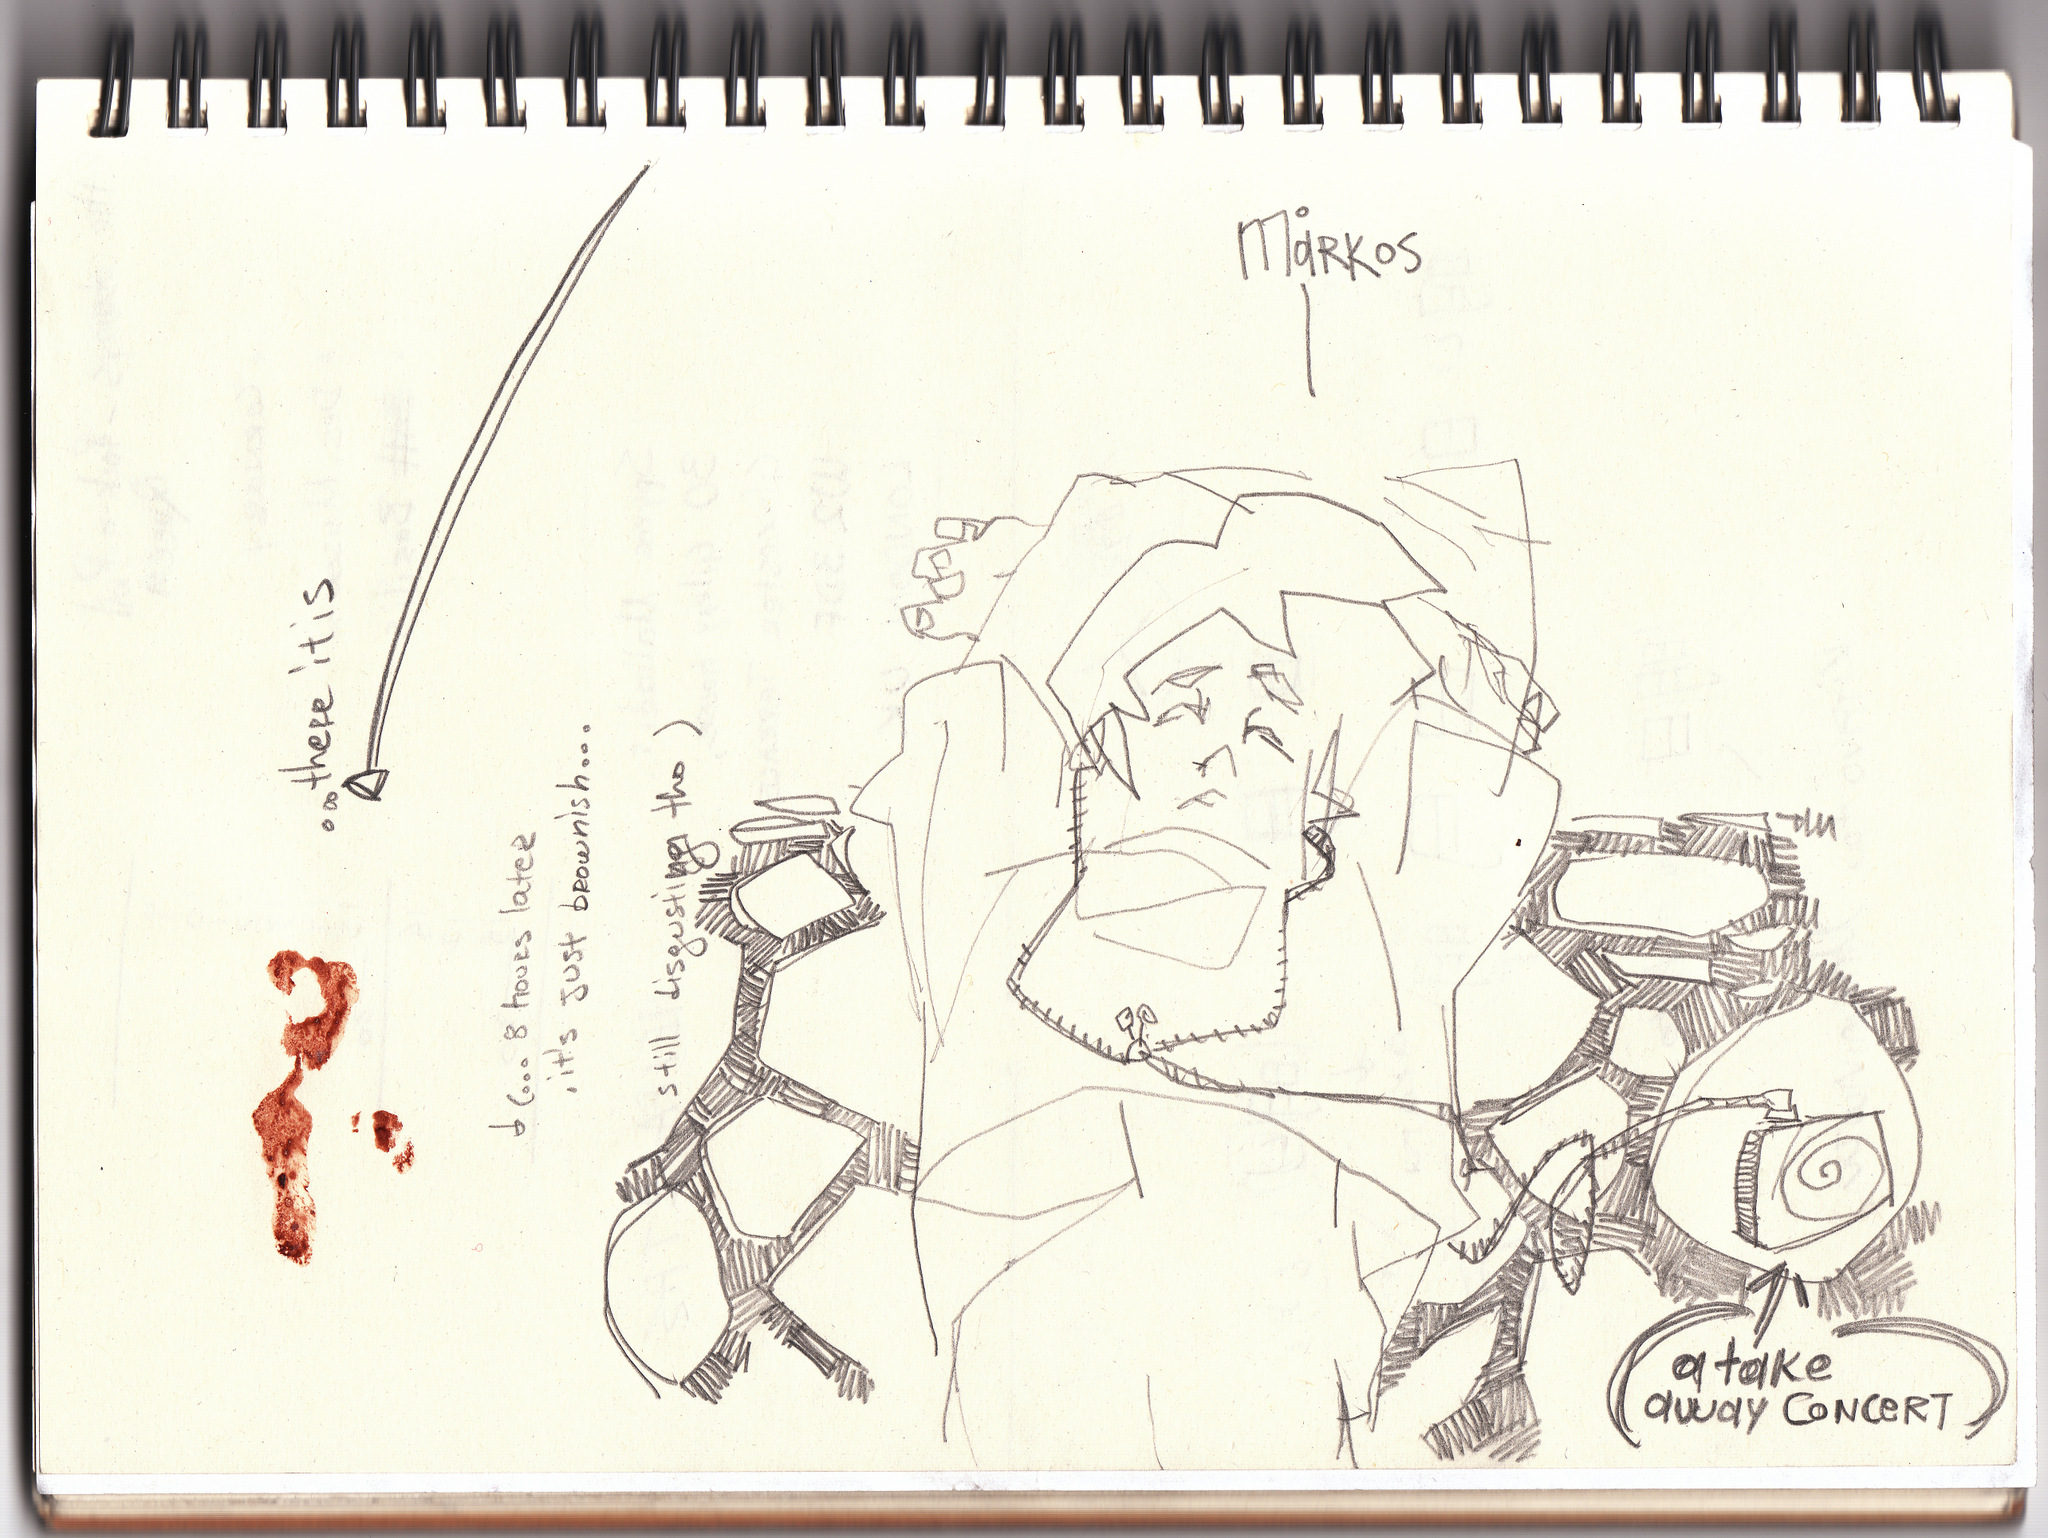 Markos
...there it is
(... 8 hours later
it's just brownish...
still disgusting tho)
a take
away CONCERT